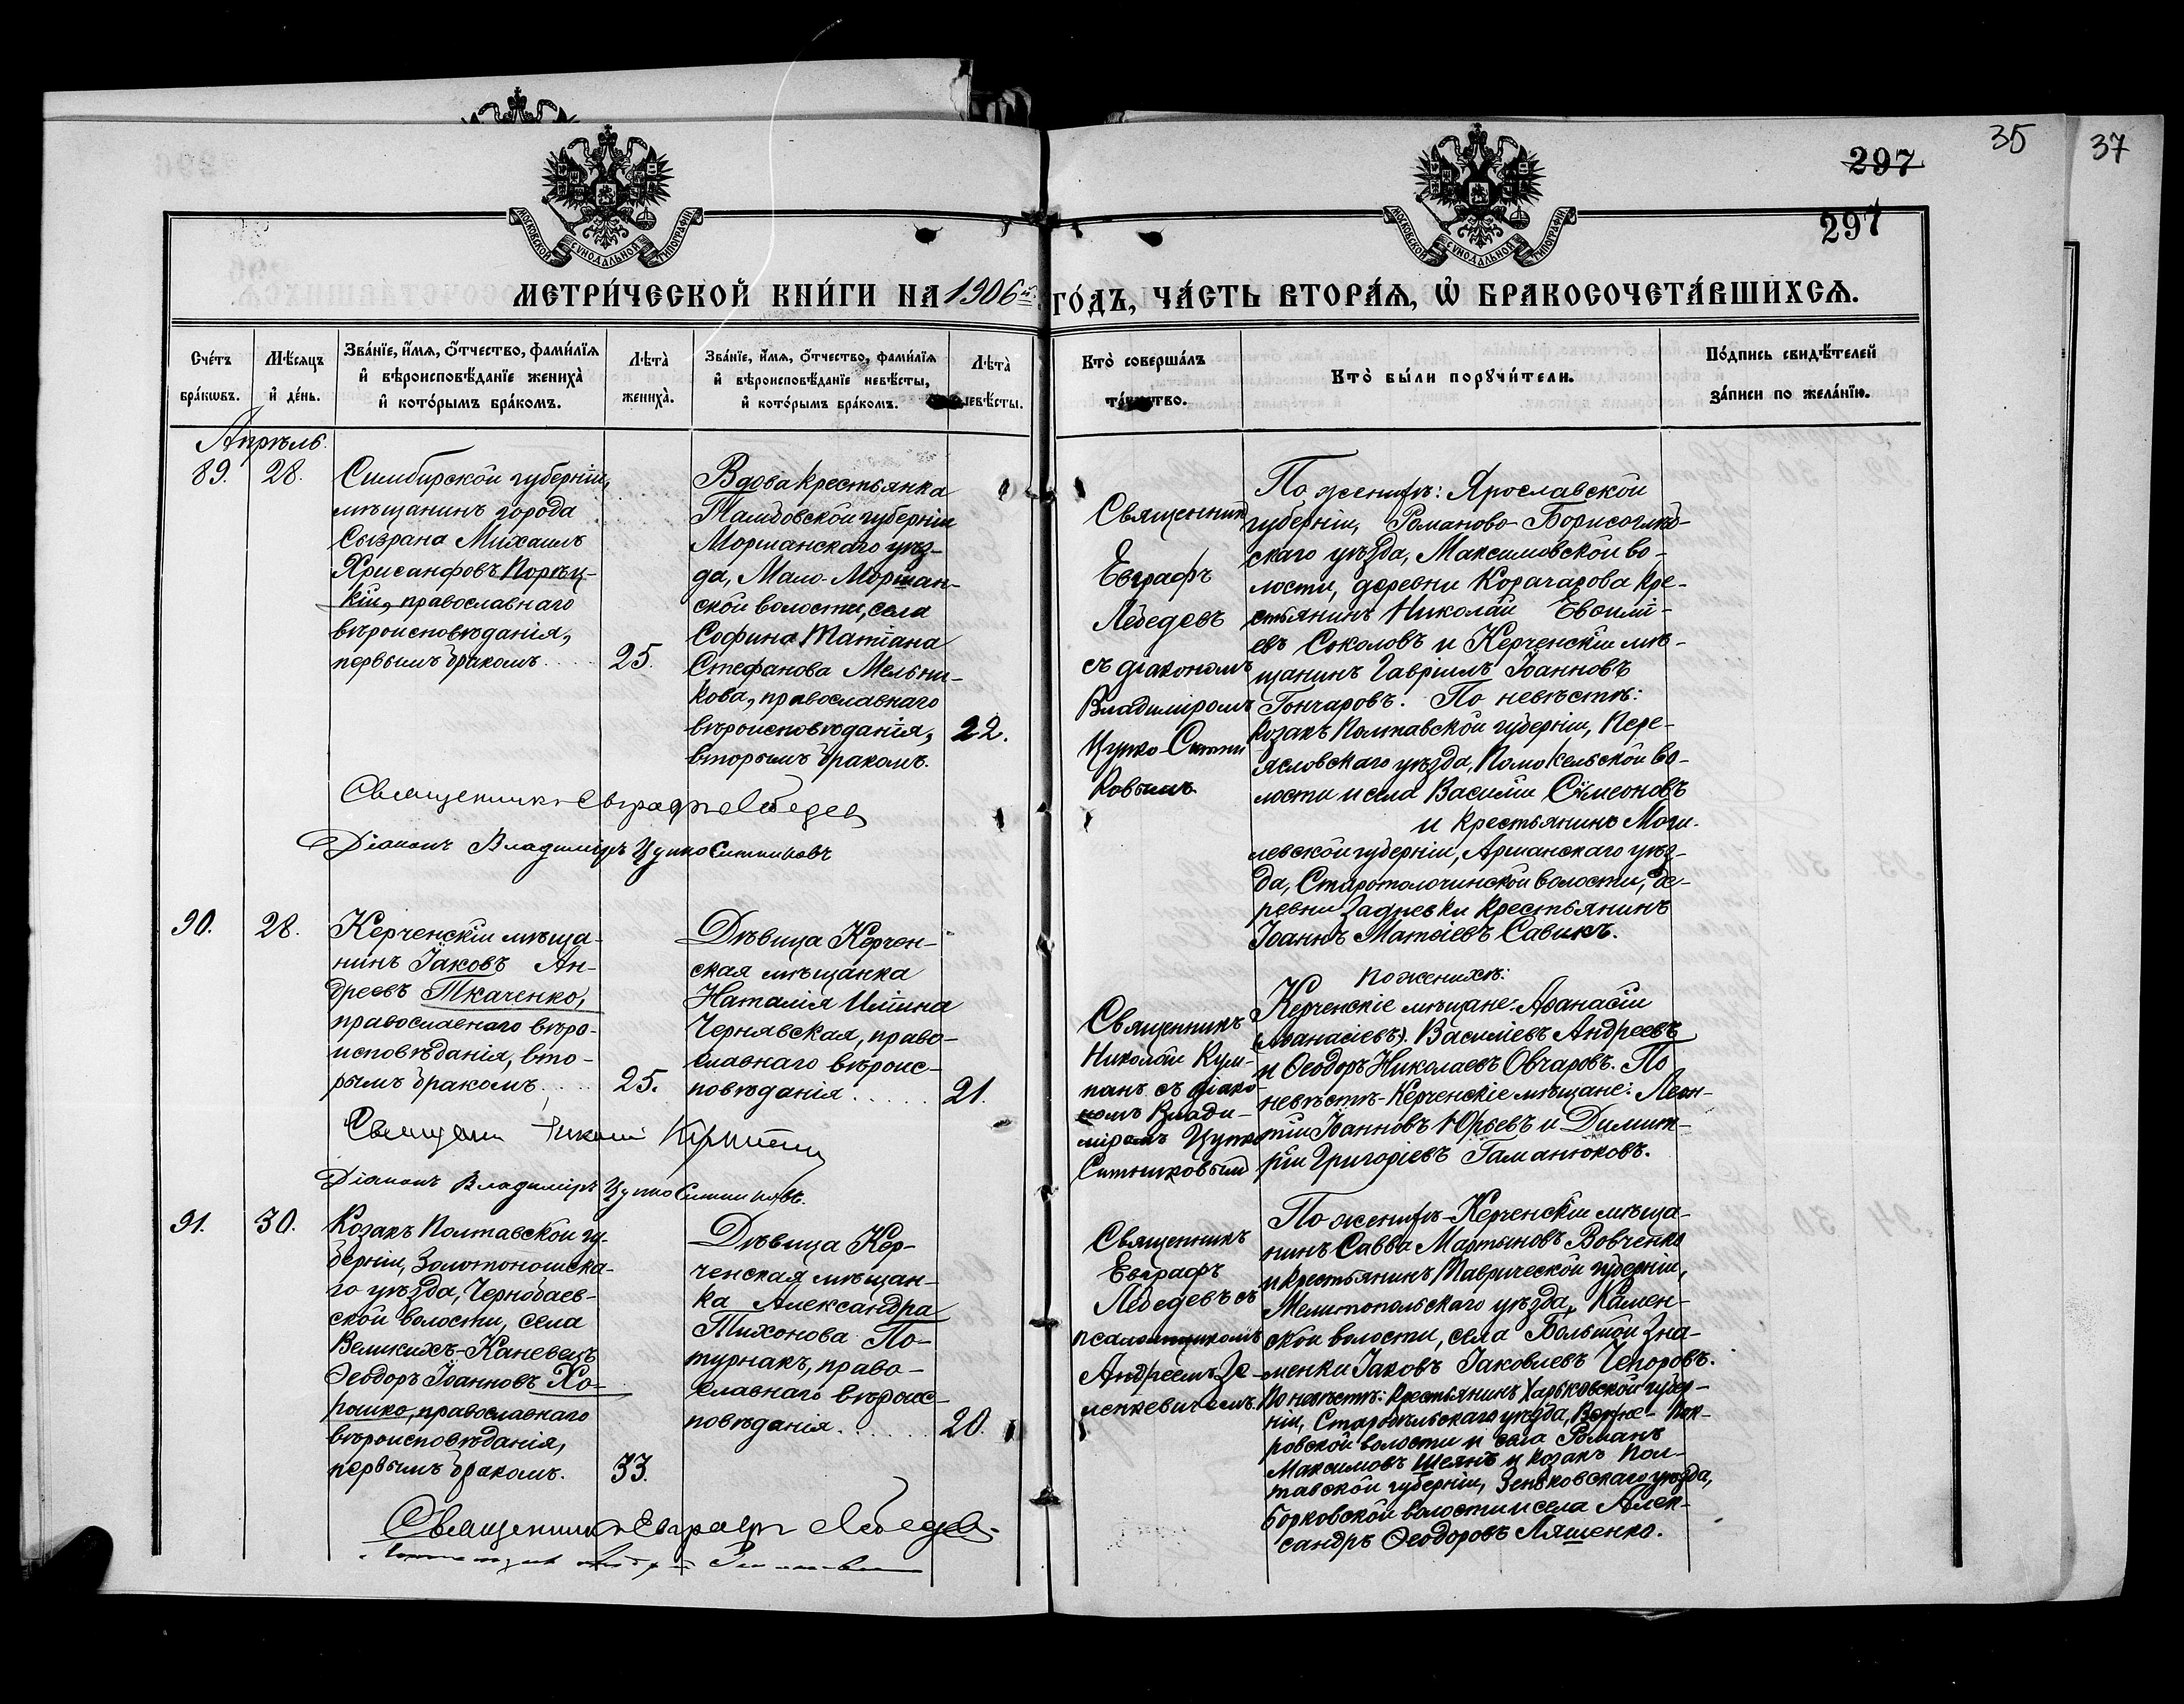 35
37
297
297
МОСКОВСКОЙ СУНОДАЛЬНОЙ ТИПОГРАФІИ
МОСКОВСКОЙ СУНОДАЛЬНОЙ ТИПОГРАФІИ
МЕТРИ́ЧЕСКОЙ КНИ́ГИ НА 1906й ГО́ДЪ, ЧА́СТЬ ВТОРА́Ѧ, Ѡ҆ БРАКОСОЧЕТА́ВШИХСѦ.
Сче́тъ
бра́кѡвъ.
Мѣ́сѧцъ
и҆ де́нь.
Зва́нїе, и҆́мѧ, ѻ҆́тчество, фами́лїѧ
и҆ вѣроисповѣ́данїе жениха̀
и҆ кото́рымъ бра́комъ.
Лѣ́та̀
жениха̀.
Зва́нїе, и҆́мѧ, ѻ҆́тчество, фами́лїѧ
и҆ вѣроисповѣ́данїе невѣ́сты,
и҆ кото́рымъ бра́комъ.
Лѣ́та̀
невѣ́сты.
Кто̀ соверша́лъ
та́инство.
Кто̀ бы́ли порꙋчи́тели.
По́дпись свидѣ́телей
за́писи по жела́нїю.
Апрѣль.
89.
28.
Симбирской губерніи,
мѣщанинъ города
Сызрана Михаилъ
Хрисанфовъ Порѣц-
кій, православнаго
вѣроисповѣданія,
первымъ бракомъ
25.
Вдова крестьянка
Тамбовской губерніи
Моршанскаго уѣз-
да, Мало-Моршан-
ской волости, села
Софина Татіана
Стефанова Мельни-
кова, православнаго
вѣроисповѣданія,
вторымъ бракомъ.
22.
Священник
Евграфъ
Лебедевъ
съ діакономъ
Владиміромъ
Цупко-Ситни
ковымъ
По женихѣ: Ярославской
губерніи, Романово-Борисоглѣб-
скаго уѣзда, Максимовской во-
лости, деревни Корачарова кре-
стьянинъ Николай Евѳимі-
евъ Соколовъ и Керченскій мѣ-
щанинъ Гавріилъ Іоанновъ
Гончаровъ. По невѣстѣ:
козакъ Полтавской губерніи, Пере-
ясловскаго уѣзда, Помокельской во-
лости и села Василій Сѵмеоновъ
и крестьянинъ Моги-
левской губерніи, Аршанскаго уѣз-
да, Старотолочинской волости, де-
ревни Задневки крестьянинъ
Іоаннъ Матѳіевъ Савикъ.
Священникъ Евграфъ Лебедев
Діаконъ Владиміръ Цупко Ситниковъ
90.
28.
Керченскій мѣща-
нинъ Іаковъ Ан-
дреевъ Ткаченко,
православнаго вѣро-
исповѣданія, вто-
рымъ бракомъ
25.
Дѣвица Керчен-
ская мѣщанка
Наталія Иліина
Чернявская, право-
славнаго вѣроис-
повѣданія
21.
Священникъ
Николай Кум-
панъ съ діако-
номъ Влади-
міромъ Цупко
Ситниковым
По женихѣ:
Керченскіе мѣщане: Аѳанасій
(Аѳанасіевъ). Василіевъ Андреевъ
и Ѳеодоръ Николаевъ Овчаровъ. По
невѣстѣ-Керченскіе мѣщане: Леон-
тій Іоанновъ Юрьевъ и Димит-
рій Григоріевъ Гаманюковъ.
Діаконъ Владиміръ Цупко Ситниковъ.
91.
30.
Козакъ Полтавской гу-
берніи, Золотоношска-
го уѣзда, Чернобаев-
ской волости, села
Великихъ-Каневецъ
Ѳеодоръ Іоанновъ Хо-
рошко, православнаго
вѣроисповѣданія,
первымъ бракомъ.
33.
Дѣвица Кер-
ченская мѣщан-
ка Александра
Тихонова По-
турнакъ, право-
славнаго вѣроис-
повѣданія
20.
Священникъ
Евграфъ
Лебедевъ съ
псаломщикомъ
Андреемъ Зе-
ленкевичемъ.
По женихѣ-Керченскій мѣща-
нинъ Савва Мартыновъ Вовченко
и крестьянинъ Таврической губерніи,
Мелитопольскаго уѣзда, Камен-
ской волости, села Большой Зна-
менки Іаковъ Іаковлевъ Чепоровъ.
По невѣстѣ: крестьянинъ Харьковской губер-
ніи, Старобѣльскаго уѣзда, Верхне-Пок-
ровской волости и села Романъ
Максимовъ Шеянъ и козакъ Пол-
тавской губерніи, Зеньковскаго уѣзда,
Борковской волости и села Алек-
сандръ Ѳеодоровъ Ляшенко.
Священникъ Евграфъ Лебедев.